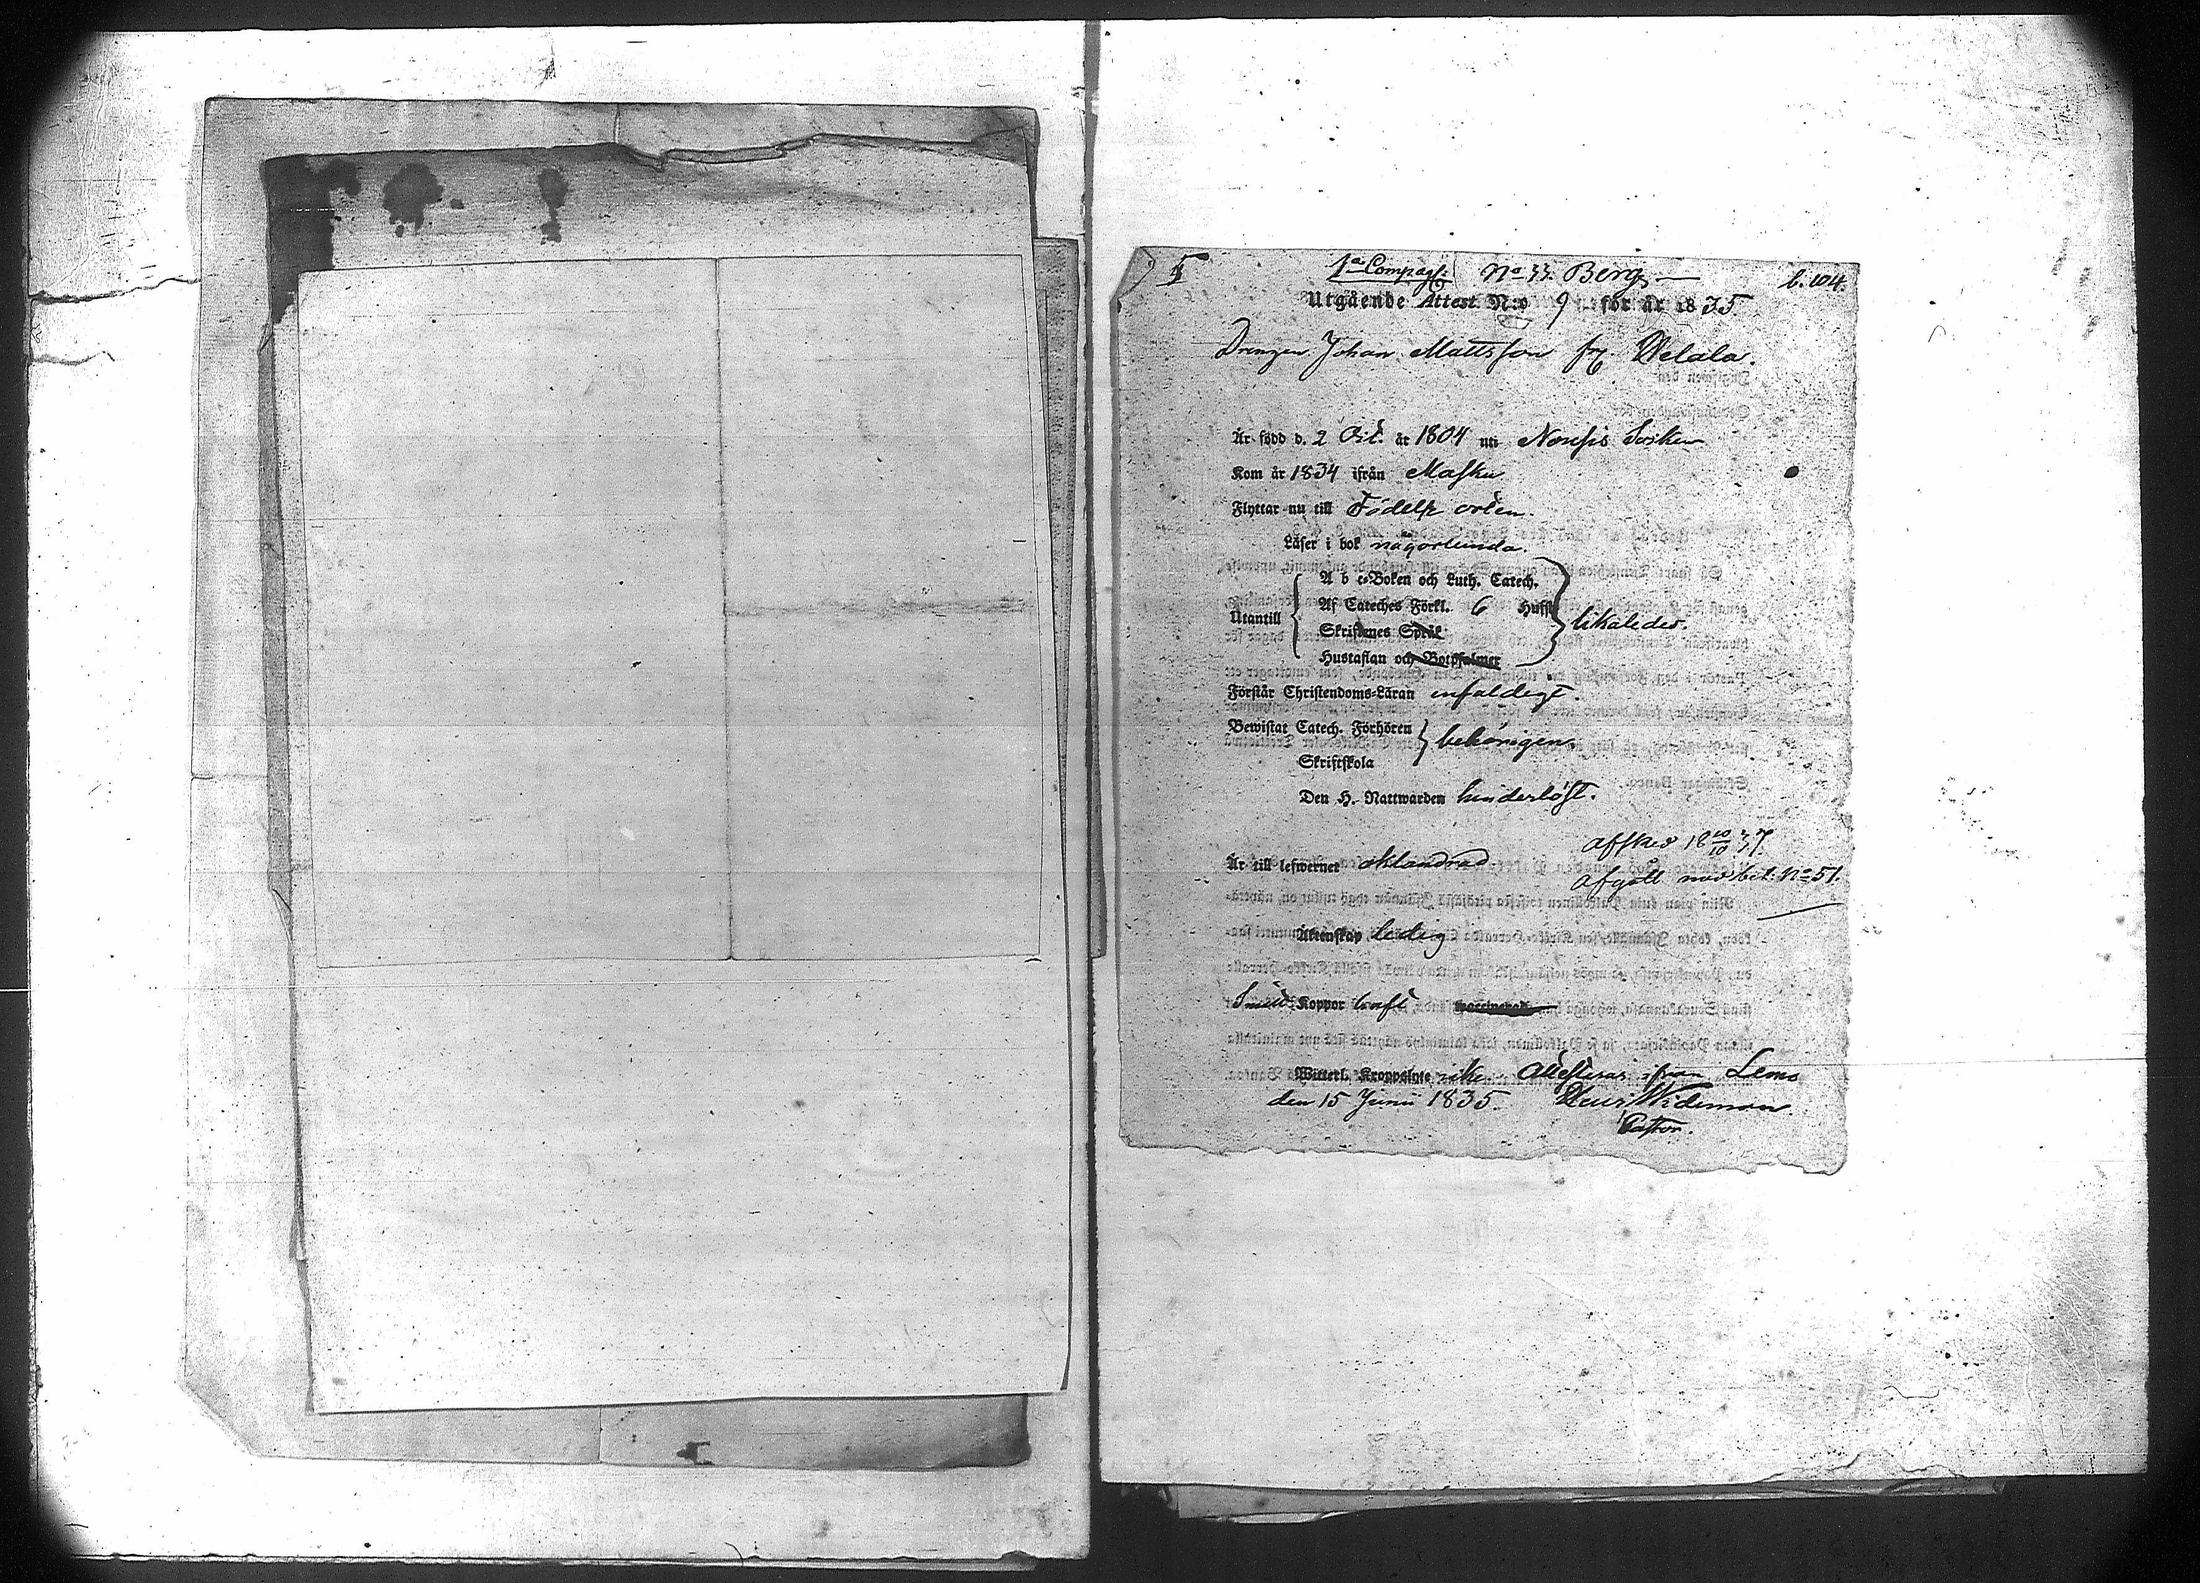 1a Compagt: No 33. Berg b. 104.
Utgående Attest N:o 9 för år 1835
Drengen Johan Mattsson fr.
Är född d. 2 Oct. år 1804 uti Nousis Socken
Kom år 1834 ifrån Masku
Flyttar nu till Födelse orten.
Läser i bok någorlunda.
A b c-Boken och Luth. Catech.
Af Cateches Förkl. 6 Hufst
Utantill likaledes.
Skriftenes Språk
Hustaflan och Botpsalmer
Förstår Christendoms-Läran enfaldigt.
Bewistat Catech. Förhören behörigen
Skriftskola
Den H. Nattwarden hinderlöst.
Afsked 18 10/10 37.
Är till lefwernet oklandrad
Afgått med bet. No 51.
Äktenskap ledig
Smitt Koppor haft vaccinerad
Witterl. Kroppslyte icke. Attesteras ifrån Lemo
den 15 Junii 1835. Wideman
Pastor.